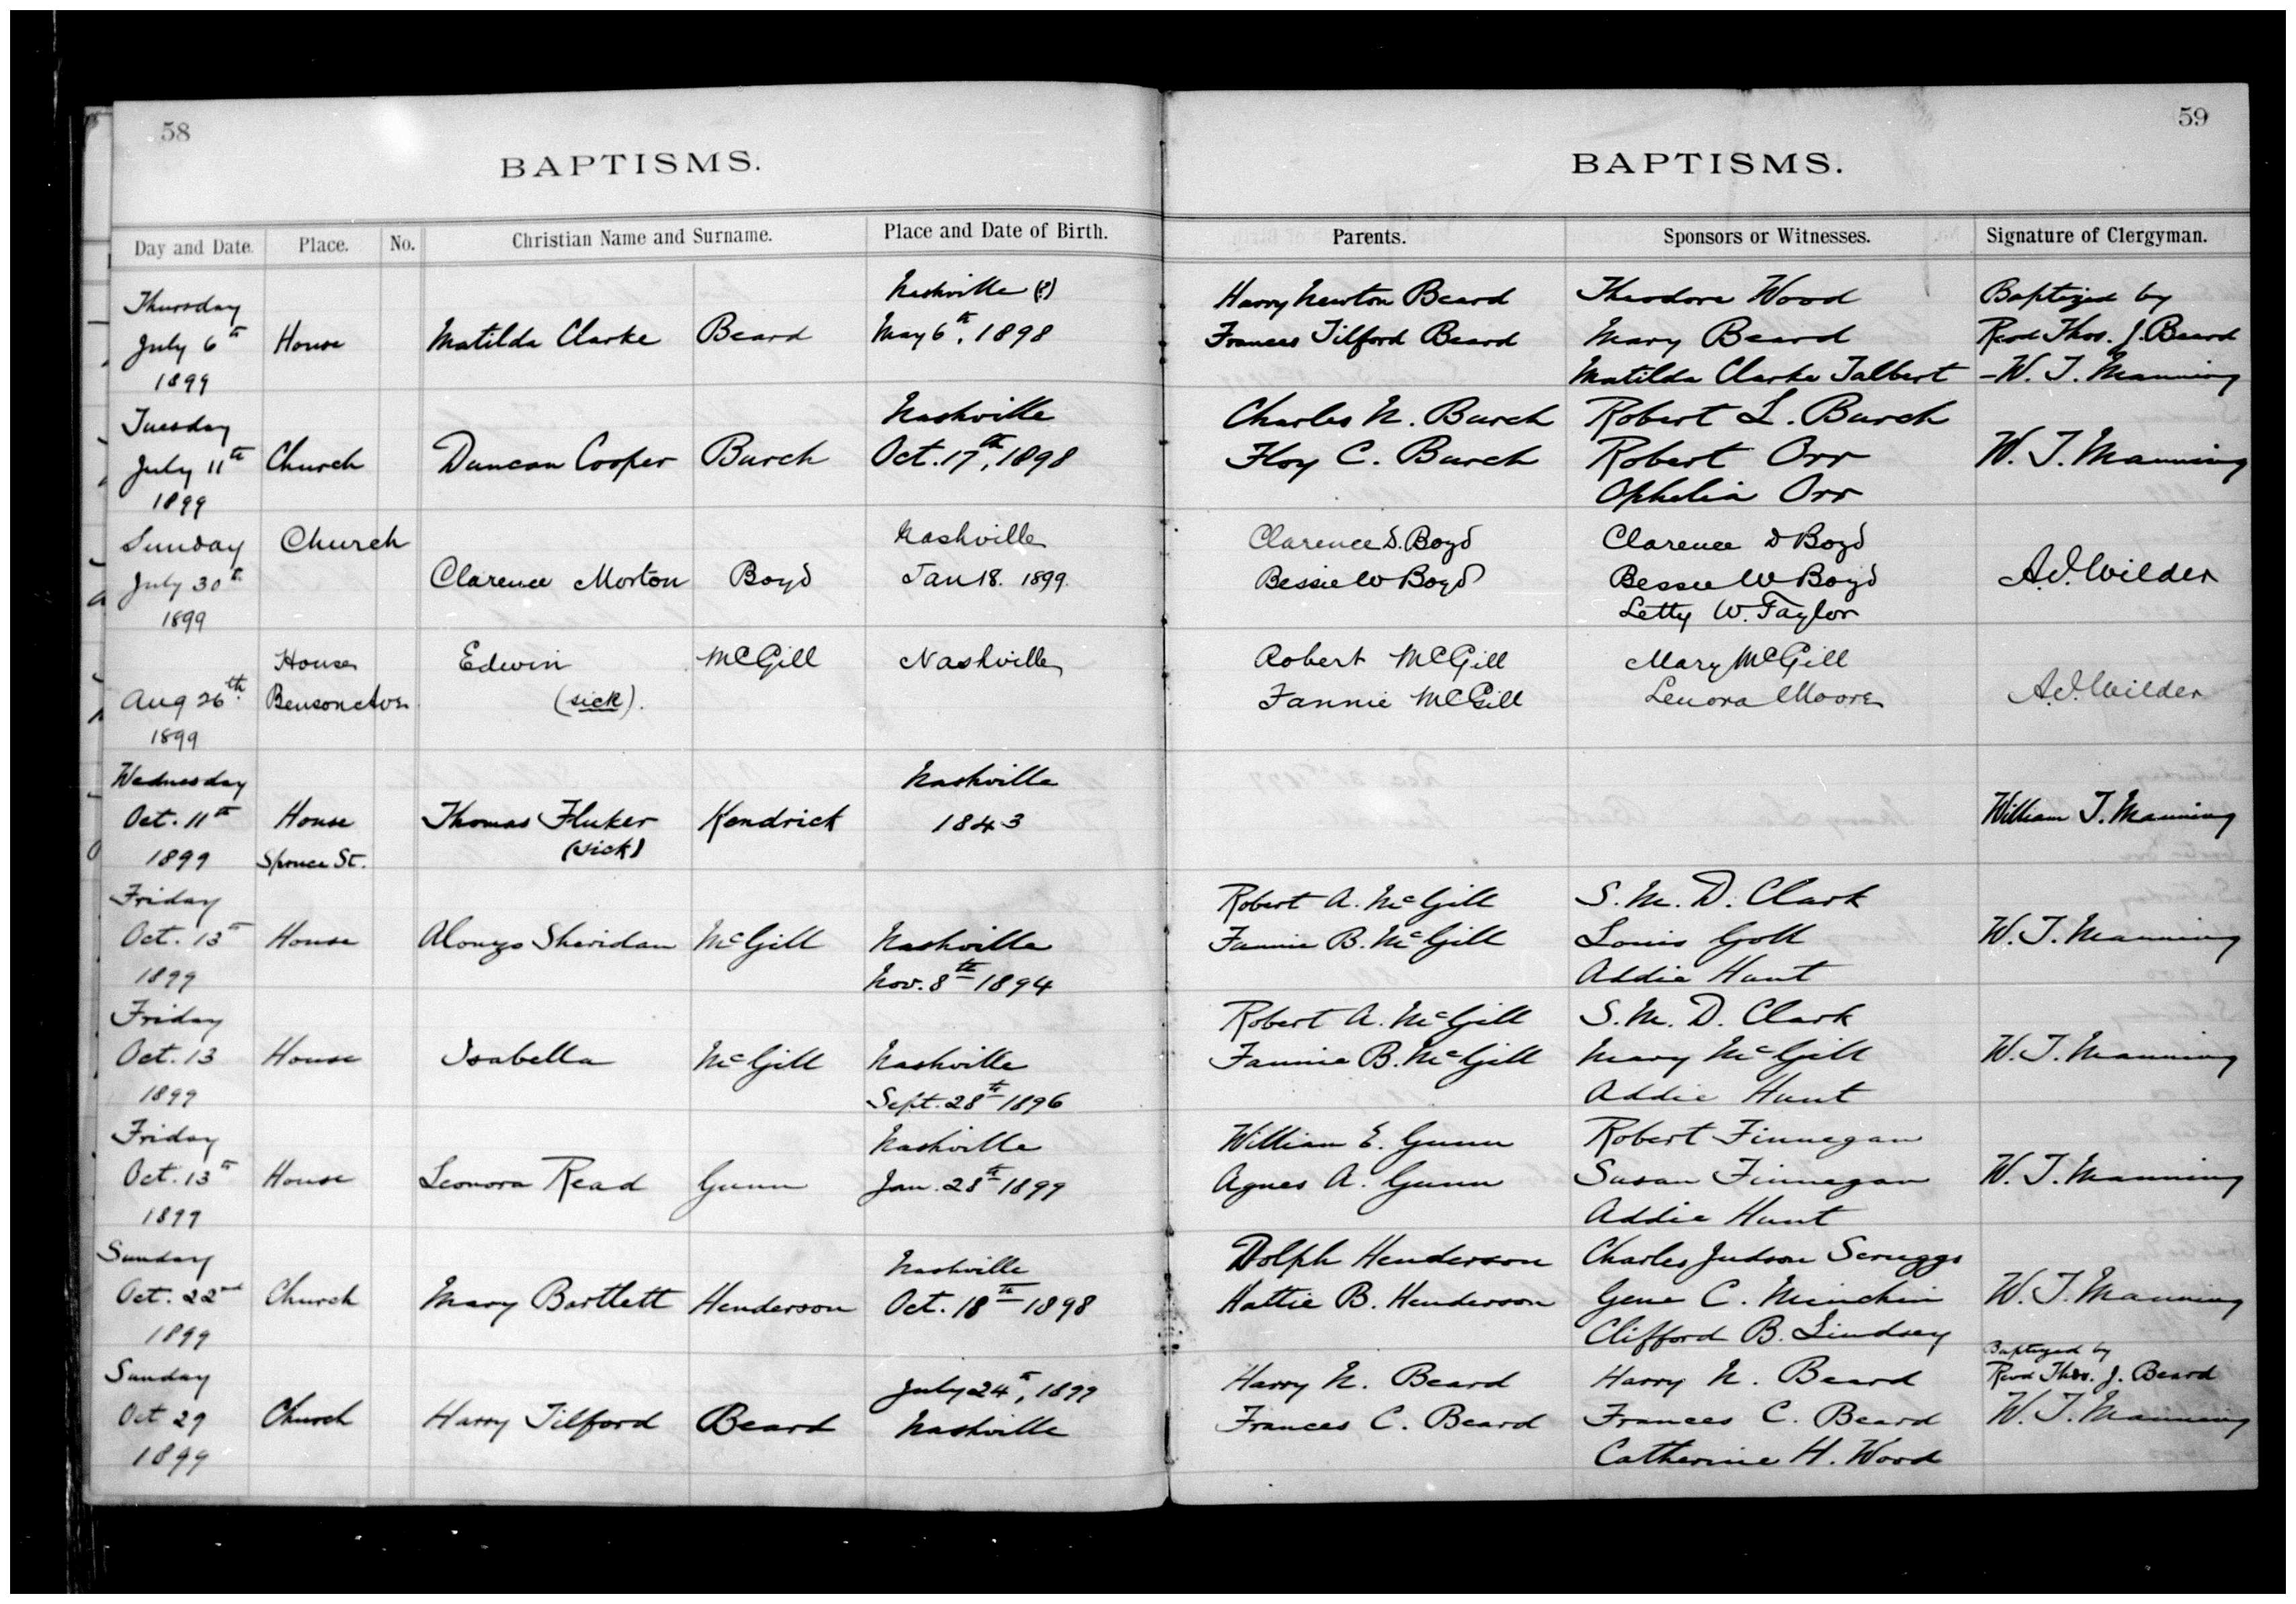 58
BAPTISMS.
Day and Date. Place. No. Christian Name and Surname. Place and Date of Birth.
Thursday Nashville (?)
July 6th House Matilda Clarke Beard May 6th, 1898
1899
Tuesday Nashville
July 11th Church Duncan Cooper Burch Oct. 17th, 1898
1899
Sunday Church Nashville
July 30th Clarence Morton Boyd Jan 18. 1899.
1899
House Edwin McGill Nashville
Aug 26th. Benson Ave (sick).
1899
Wednesday Nashville
Oct. 11th House Thomas Fluker Kendrick 1843
1899 Spruce St. (sick)
Friday
Oct. 13th House Alonzo Sheridan McGill Nashville
1899 Nov. 8th 1894
Friday
Oct. 13 House Isabella McGill Nashville
1899 Sept. 28th 1896
Friday Nashville
Oct. 13th House Leonora Read Gunn Jan. 28th 1899
1899
Sunday Nashville
Oct. 22nd Church Mary Bartlett Henderson Oct. 18th 1898
1899
Sunday July 24th, 1899
Oct 29 Church Harry Tilford Beard Nashville
1899
59
BAPTISMS.
Parents. Sponsors or Witnesses. Signature of Clergyman.
Harry Newton Beard Theodore Wood Baptized by
Frances Tilford Beard Mary Beard Revd Thos. J. Beard
Matilda Clarke Talbert -W. T. Manning
Charles N. Burch Robert L. Burch
Floy C. Burch Robert Orr W. T. Manning
Ophelia Orr
Clarence D. Boyd Clarence D Boyd
Bessie W Boyd Bessie W Boyd A.J. Wilder
Letty W. Taylor
Robert McGill Mary McGill
Fannie McGill Lenora Moore A.J. Wilder
William T. Manning
Robert A. McGill S. M. D. Clark
Fannie B. McGill Louis Goll W. T. Manning
Addie Hunt
Robert A. McGill S. M. D. Clark
Fannie B. McGill Mary McGill W. T. Manning
Addie Hunt
William E. Gunn Robert Finnegan
Agnes A. Gunn Susan Finnegan W. T. Manning
Addie Hunt
Dolph Henderson Charles Judson Scruggs
Hattie B. Henderson Gene C. Minchin W. T. Manning
Clifford B. Lindsey
Baptized by
Harry N. Beard Harry N. Beard Revd Thos. J. Beard
Frances C. Beard Frances C. Beard W. T. Manning
Catherine H. Wood